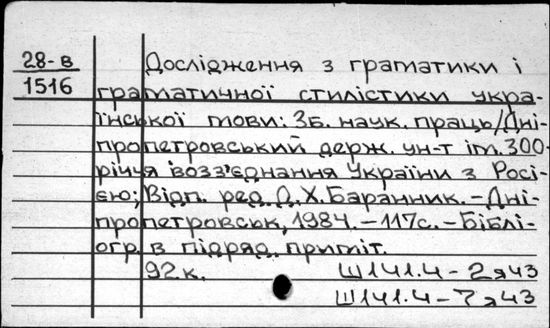 28-в
1516
Дослідження з граматики і
граматичної стилістики укра-
їнської мови: Зб. наук. праць/Дні-
пропетровський держ. ун-т ім. 300-
річчя возз'єднання України з Росі-
єю; Відп. ред. Д.Х. Баранник. – Дні-
пропетровськ, 1984. – 117с. – Біблі-
огр. в підряд. приміт.
92к. Ш141.4 – 2я43
Ш141.4 – 7я43